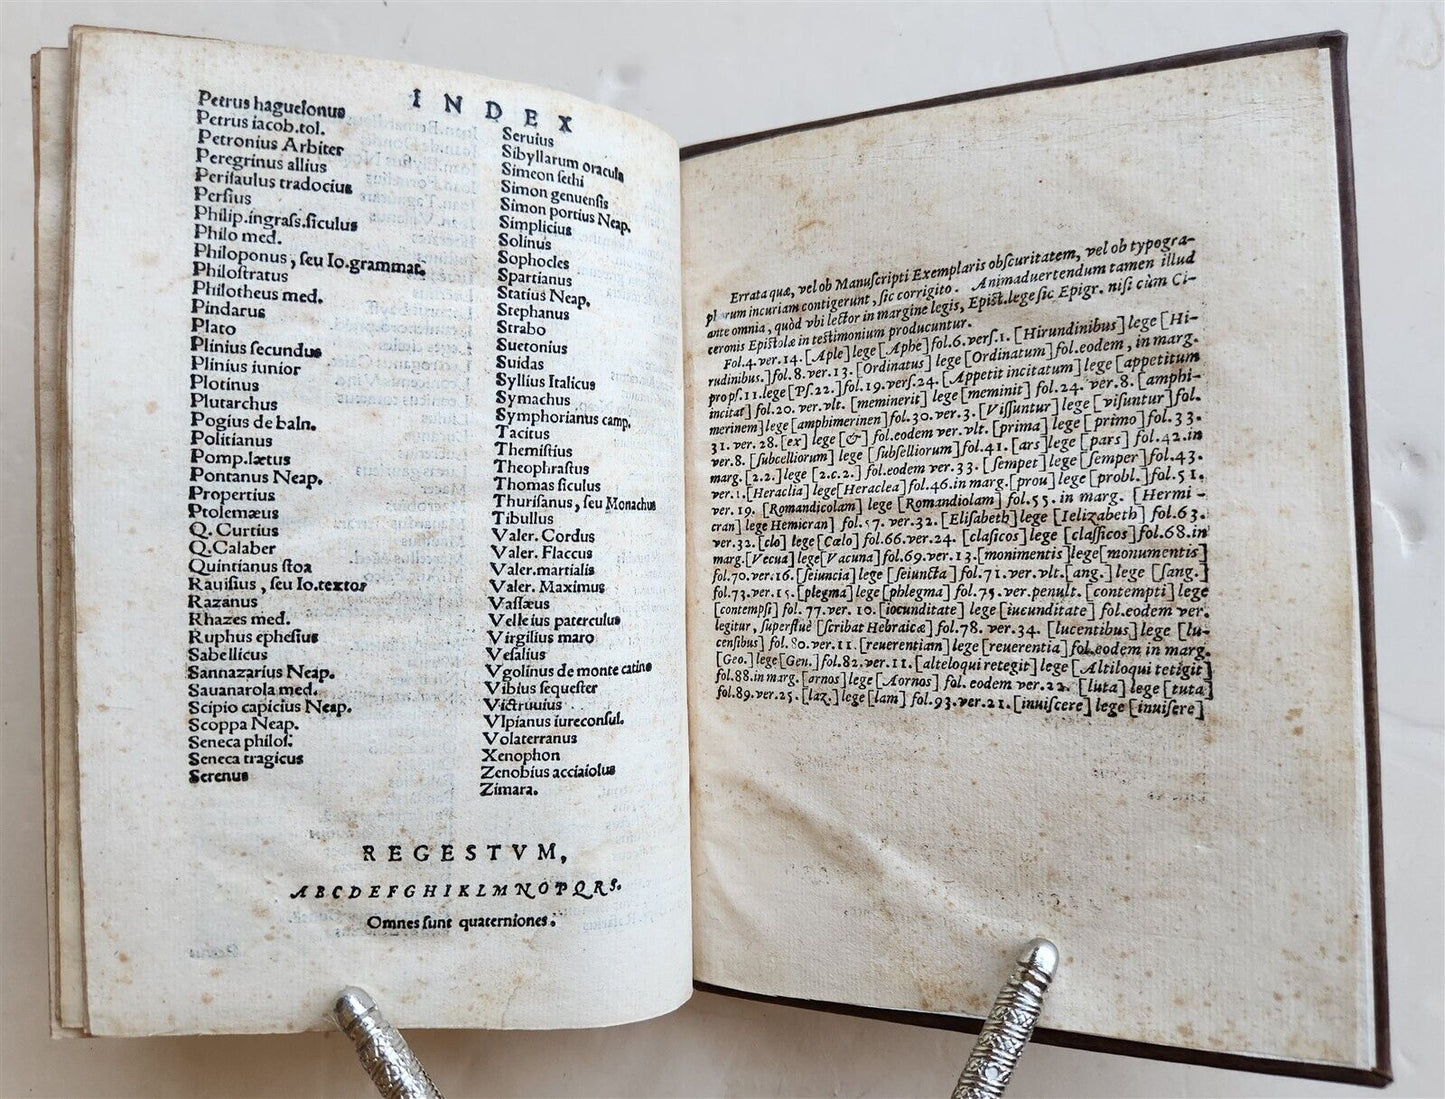 INDEX
Petrus haguelonus
Petrus iacob.tol.
Petronius Arbiter
Peregrinus allius
Perisaulus tradocius
Persius
Philip.ingrass.siculus
Philo med.
Philoponus, seu Io.grammat.
Philostratus
Philotheus med.
Pindarus
Plato
Plinius secundus
Plinius iunior
Plotinus
Plutarchus
Pogius de baln.
Politianus
Pomp.lætus
Pontanus Neap.
Propertius
Ptolemæus
Q. Curtius
Q.Calaber
Quintianus stoa
Rauisius, seu Io.textor
Razanus
Rhazes med.
Ruphus ephesius
Sabellicus
Sannazarius Neap.
Sauanarola med.
Scipio capicius Neap.
Scoppa Neap.
Seneca philos.
Seneca tragicus
Serenus
Seruius
Sibyllarum oracula
Simeon sethi
Simon genuensis
Simon portius Neap.
Simplicius
Solinus
Sophocles
Spartianus
Statius Neap.
Stephanus
Strabo
Suetonius
Suidas
Syllius Italicus
Symachus
Symphorianus camp.
Tacitus
Themistius
Theophrastus
Thomas siculus
Thurisanus, seu Monachus
Tibullus
Valer. Cordus
Valer. Flaccus
Valer.martialis
Valer. Maximus
Vassæus
Velleius paterculus
Virgilius maro
Vesalius
Vgolinus de monte catino
Vibius sequester
Victruuius
Vlpianus iureconsul.
Volaterranus
Xenophon
Zenobius acciaiolus
Zimara.
REGESTVM,
ABCDEFGHIKLMNOPQRS.
Omnes sunt quaterniones.
Errata quæ, vel ob Manuscripti Exemplaris obscuritatem, vel ob typogra-
phorum incuriam contigerunt, sic corrigito. Animaduertendum tamen illud
ante omnia, quòd vbi lector in margine legis, Epist.lege sic Epigr. nisi cùm Ci-
ceronis Epistolæ in testimonium producuntur.
Fol.4.ver.14. [Aple] lege [Aphe] fol.6.vers.1. [Hirundinibus] lege [Hi-
rudinibus.] fol.8.ver.13. [Ordinatus] lege [Ordinatum] fol.eodem, in marg.
pro ps.11.lege [Ps.22.] fol.19.vers.24. [Appetit incitatum] lege [appetitum
incitat] fol.20. ver. vlt. [meminerit] lege [meminit] fol.24. ver.8. [amphi-
merinem] lege [amphimerinen] fol.30. ver.3. [Vissuntur] lege [visuntur] fol.
31. ver.28. [ex] lege [&] fol.eodem ver.vlt. [prima] lege [primo] fol.33.
ver.8. [subcelliorum] lege [subselliorum] fol.41. [ars] lege [pars] fol.42.in
marg. [2.2.] lege [2.c.2.] fol.eodem ver.33. [sempet] lege [semper] fol.43.
ver.1. [Heraclia] lege [Heraclea] fol.46.in marg. [prou] lege [probl.] fol.51.
ver. 19. [Romandicolam] lege [Romandiolam] fol.55. in marg. [Hermi-
cran] lege Hemicran] fol.57. ver.32. [Elisabeth] lege [Ielizabeth] fol.63.
ver.32. [clo] lege [Cœlo] fol.66.ver.24. [clasicos] lege [classicos] fol.68.in
marg. [Vecua] lege [Vacuna] fol.69.ver.13. [monimentis] lege [monumentis]
fol.70.ver.16. [seiuncia] lege [seiuncta] fol.71.ver.vlt. [ang.] lege [sang.]
fol.73.ver.15. [plegma] lege [phlegma] fol.75.ver.penult. [contempti] lege
[contempsi] fol. 77. ver. 10. [iocunditate] lege [iucunditate] fol.eodem ver.
legitur, superfluè [scribat Hebraicæ] fol.78. ver.34. [lucentibus] lege [lu-
censibus] fol.80.ver.11. [reuerentiam] lege [reuerentia] fol.eodem in marg.
[Geo.] lege [Gen.] fol.82.ver.11. [alteloqui retegit] lege [Altiloqui tetigit]
fol.88.in marg. [ornos] lege [Aornos] fol. eodem ver.22. [luta] lege [tuta]
fol.89.ver.25. [laz.] lege [lam] fol.93.ver.21. [inuiscere] lege [inuisere]